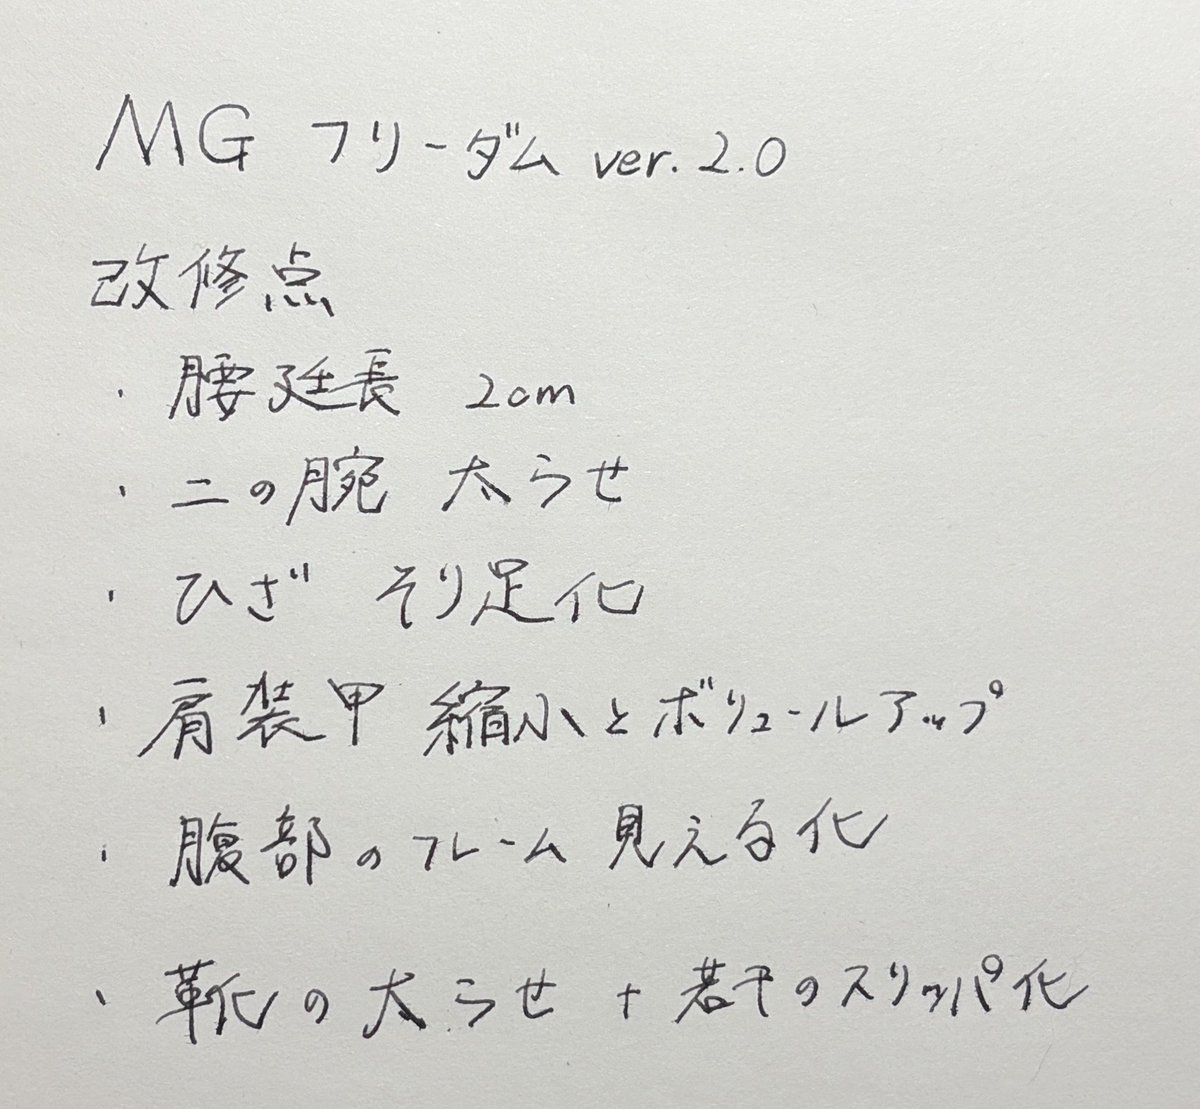 MG フリーダム ver. 2.0
改修点
・腰延長 2cm
・二の腕 太らせ
・ひざ そり足化
・肩装甲 縮小とボリュールアップ
・腹部のフレーム 見える化
・靴の太らせ + 若干のスリッパ化